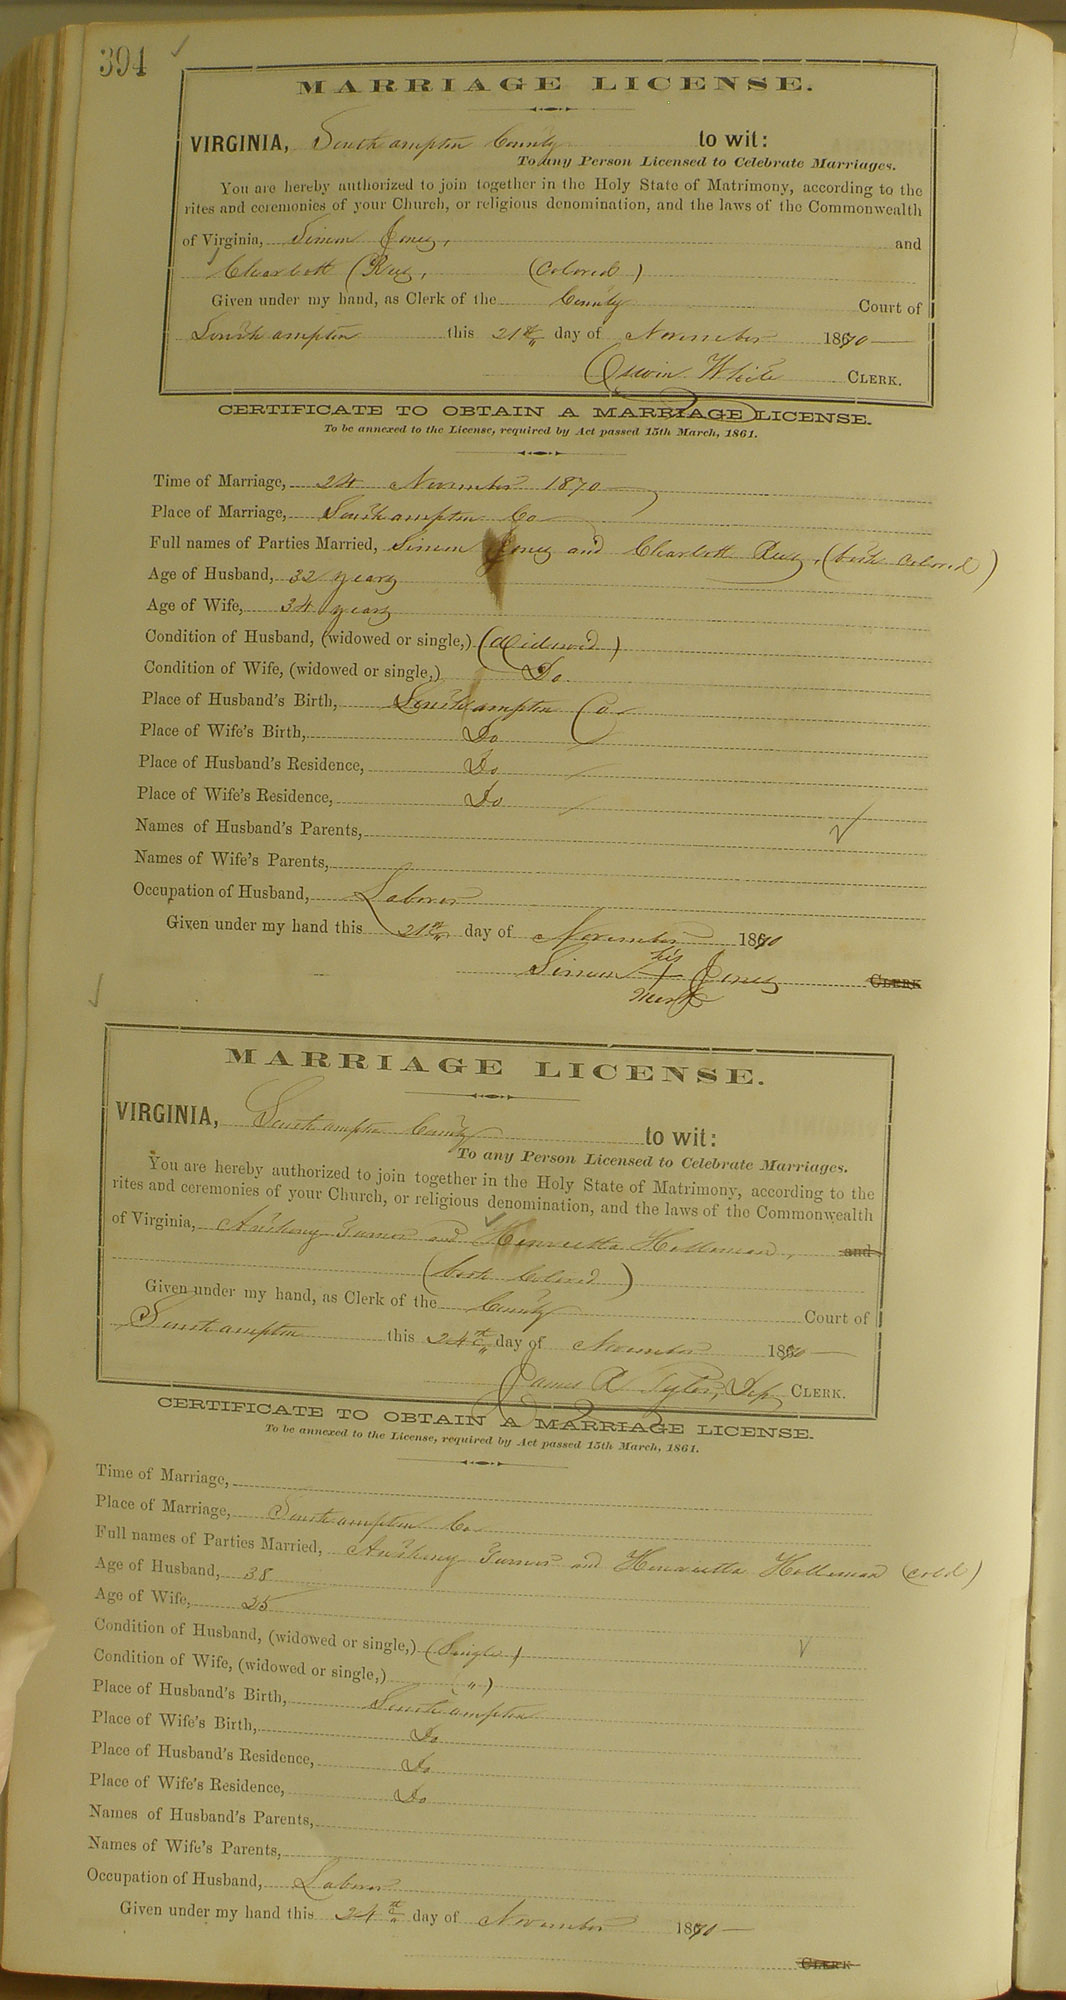 394
MARRIAGE LICENSE.
VIRGINIA, Southampton County to wit:
To any Person Licensed to Celebrate Marriages.
You are hereby authorized to join together in the Holy State of Matrimony, according to the
rites and ceremonies of your Church, or religious denomination, and the laws of the Commonwealth
of Virginia, Simon Jones, and
Charlott (Colored)
Given under my hand, as Clerk of the County Court of
Southampton this 21st day of November 1870
White CLERK.
CERTIFICATE TO OBTAIN A MARRIAGE LICENSE.
To be annexed to the License, required by Act passed 15th March, 1861.
Time of Marriage, 24 November 1870
Place of Marriage, Southampton Co
Full names of Parties Married, Simon Jones and Charlott (both Colored)
Age of Husband, 32 years
Age of Wife, 34 years
Condition of Husband, (widowed or single,) (Widowed)
Condition of Wife, (widowed or single,) Do
Place of Husband's Birth, Southampton Co
Place of Wife's Birth, Do
Place of Husband's Residence, Do
Place of Wife's Residence, Do
Names of Husband's Parents,
Names of Wife's Parents,
Occupation of Husband, Laborer
Given under my hand this 21st day of November 1870
his
Simon + Jones CLERK
mark
MARRIAGE LICENSE.
VIRGINIA, Southampton County to wit:
To any Person Licensed to Celebrate Marriages.
You are hereby authorized to join together in the Holy State of Matrimony, according to the
rites and ceremonies of your Church, or religious denomination, and the laws of the Commonwealth
of Virginia, Anthony Turner and Henrietta Holleman, and
(both Colored)
Given under my hand, as Clerk of the County Court of
Southampton this 24th day of November 1870
James R Tyler, Dep CLERK.
CERTIFICATE TO OBTAIN A MARRIAGE LICENSE.
To be annexed to the License, required by Act passed 15th March, 1861.
Time of Marriage,
Place of Marriage, Southampton Co
Full names of Parties Married, Anthony Turner and Henrietta Holleman (cold)
Age of Husband, 38
Age of Wife, 25
Condition of Husband, (widowed or single,) (Single)
Condition of Wife, (widowed or single,) ( " )
Place of Husband's Birth, Southampton
Place of Wife's Birth, Do
Place of Husband's Residence, Do
Place of Wife's Residence, Do
Names of Husband's Parents,
Names of Wife's Parents,
Occupation of Husband, Laborer
Given under my hand this 24th day of November 1870
CLERK